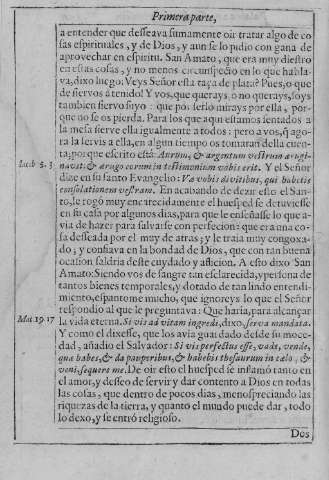 Primera parte,
a entender que desseava sumamente oir tratar algo de co
sas espirituales, y de Dios, y aun se lo pidio con gana de
aprovechar en espiritu. San Amato, que era muy diestro
en estas cosas, y no menos circunspecto en lo que habla-
va, dixo luego: Veys Señor esta taça de plata? Pues, o que
de siervos à tenido! Y vos, que querays, o no querays, soys
tambien siervo suyo: que por serlo mirays por ella, por-
que no se os pierda. Para los que aqui estamos sentados a
la mesa sierve ella igualmente a todos: pero a vos, q̃ ago-
ra la servis a ella, en algun tiempo os tomaràn della cuen-
ta; porque escrito està: Aurum, & argentum vestrum arugi-
Iacob 5. 3. navit: & arugo eorum in testimonium vobis erit. Y el Señor
dize en su santo Evangelio: Va vobis divitibus, qui habetis
consolationem vestram. En acabando de dezir esto el San-
to, le rogò muy encarecidamente el huesped se detuviesse
en su casa por algunos dias, para que le enseñasse lo que a-
via de hazer para salvarse con perfecion: que era una co-
sa desseada por el muy de atras; y le traìa muy congoxa-
do; y confiava en la bondad de Dios, que con tan buena
ocasion saldria deste cuydado y aflicion. A esto dixo San
Amato: Siendo vos de sangre tan esclarecida, y persona de
tantos bienes temporales, y dotado de tan lindo entendi-
miento, espantome mucho, que ignoreys lo que el Señor
respondio al que le preguntava: Que haria, para alcançar
Mat. 19. 17 la vida eterna. Si vis ad vitam ingredi, dixo, serva mandata.
Y como el dixesse, que los avia guardado desde su moce-
dad, añadio el Salvador: Si vis perfectus esse, vade, vende,
qua habes, & da pauperibus, & habebis thesaurum in calo, &
veni, sequere me. De oir esto el huesped se inflamò tanto en
el amor, y desseo de servir y dar contento a Dios en todas
las cosas, que dentro de pocos dias, menospreciando las
riquezas de la tierra, y quanto el mundo puede dar, todo
lo dexo, y se entrò religioso.
Dos